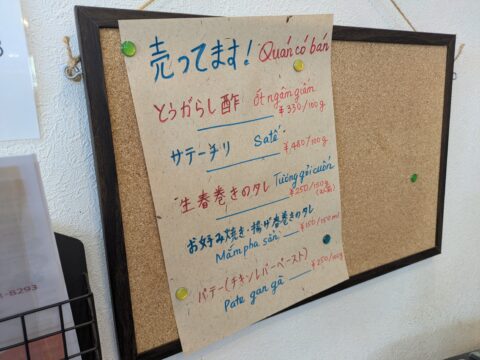 売ってます! Quán có bán
とうがらし酢 ớt ngâm giấm
¥330/100g
サテーチリ Sa tế
¥480/100g
生春巻きのタレ Tương gỏi cuốn
¥250/150g
お好み焼き・揚げ春巻きのタレ
Mắm pha sẵn ¥150/150ml
パテー(チキンレバーペースト)
Pate gan gà ¥250/100g
8293